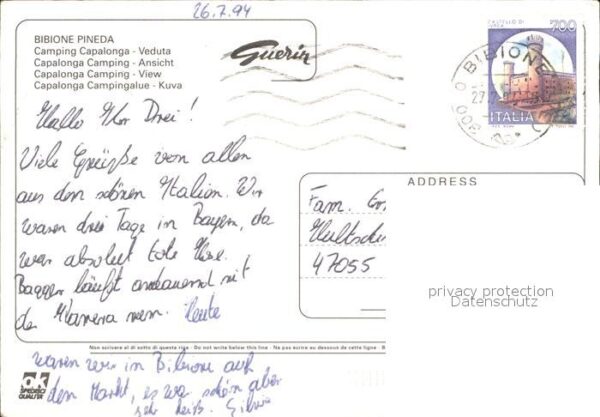 26.7.94
BIBIONE PINEDA
Camping Capalonga - Veduta
Capalonga Camping - Ansicht
Capalonga Camping - View
Capalonga Campingalue - Kuva
Guerin
CASTELLO DI
700
ITALIA
BIBIONE
Hallo Ihr Drei!
Viele Grüße von allen
aus dem schönen Italien. Wir
waren drei Tage in Bayern, da
war absolut tote Hose.
läuft andauernd mit
der Kamera rum. Heute
ADDRESS
Fam.
47055
privacy protection
Datenschutz
Non scrivere al di sotto di questa riga - Do not write below this line - Ne pas écrire au dessous de cette ligne -
waren wir in Bibione auf
dem Markt, es war schön aber
sehr heiß.
ok
SPEDIRE
QUALITÀ